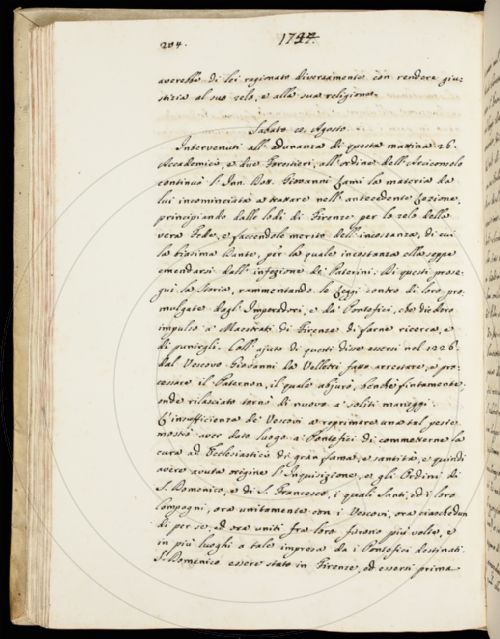 204.
1747.
averebbe di lei ragionato diversamente con rendere giu-
stizia al suo zelo, e alla sua religione.
Sabato Agosto
Intervenuti all'Adunanza di questa mattina 26.
Accademici, e due Forestieri, all'ordine dell'Arciconsolo
continuò l'Inn. Dott. Giovanni Lami la materia da
lui incominciata a trattare nell'antecedente Lezione,
principiando dalle lodi di Firenze per lo zelo della
vera Fede, e facendole merito dell'incostanza, di cui
la biasima Dante, per la quale incostanza ella seppe
emendarsi dall'infezione de' Paterini. Di questi prose-
guì la Storia, rammentando le Leggi contro di loro pro-
mulgate dagl'Imperadori, e da' Pontefici, che diedero
impulso a' Maestrati di Firenze di farne ricerca, e
di punirgli. Coll'ajuto di questi disse essersi nel 1226.
dal Vescovo Giovanni da Velletri fatto arrestare, e pro-
cessare il Paternon, il quale abjurò, benchè fintamente,
onde rilasciato tornò di nuovo a' soliti maneggi.
L'insufficienza de' Vescovi a reprimere una tal peste
mostrò aver dato luogo a' Pontefici di commetterne la
cura ad Ecclesiastici di gran fama, e santità, e quindi
avere avuta origine l'Inquisizione, e gli Ordini di
S. Domenico, e di S. Francesco, i quali Santi, ed i loro
Compagni, ora unitamente con i Vescovi, ora ciaschedun
di per se, ed ora uniti fra loro furono più volte, e
in più luoghi a tale impresa da i Pontefici destinati.
S. Domenico essere stato in Firenze, ed essersi prima